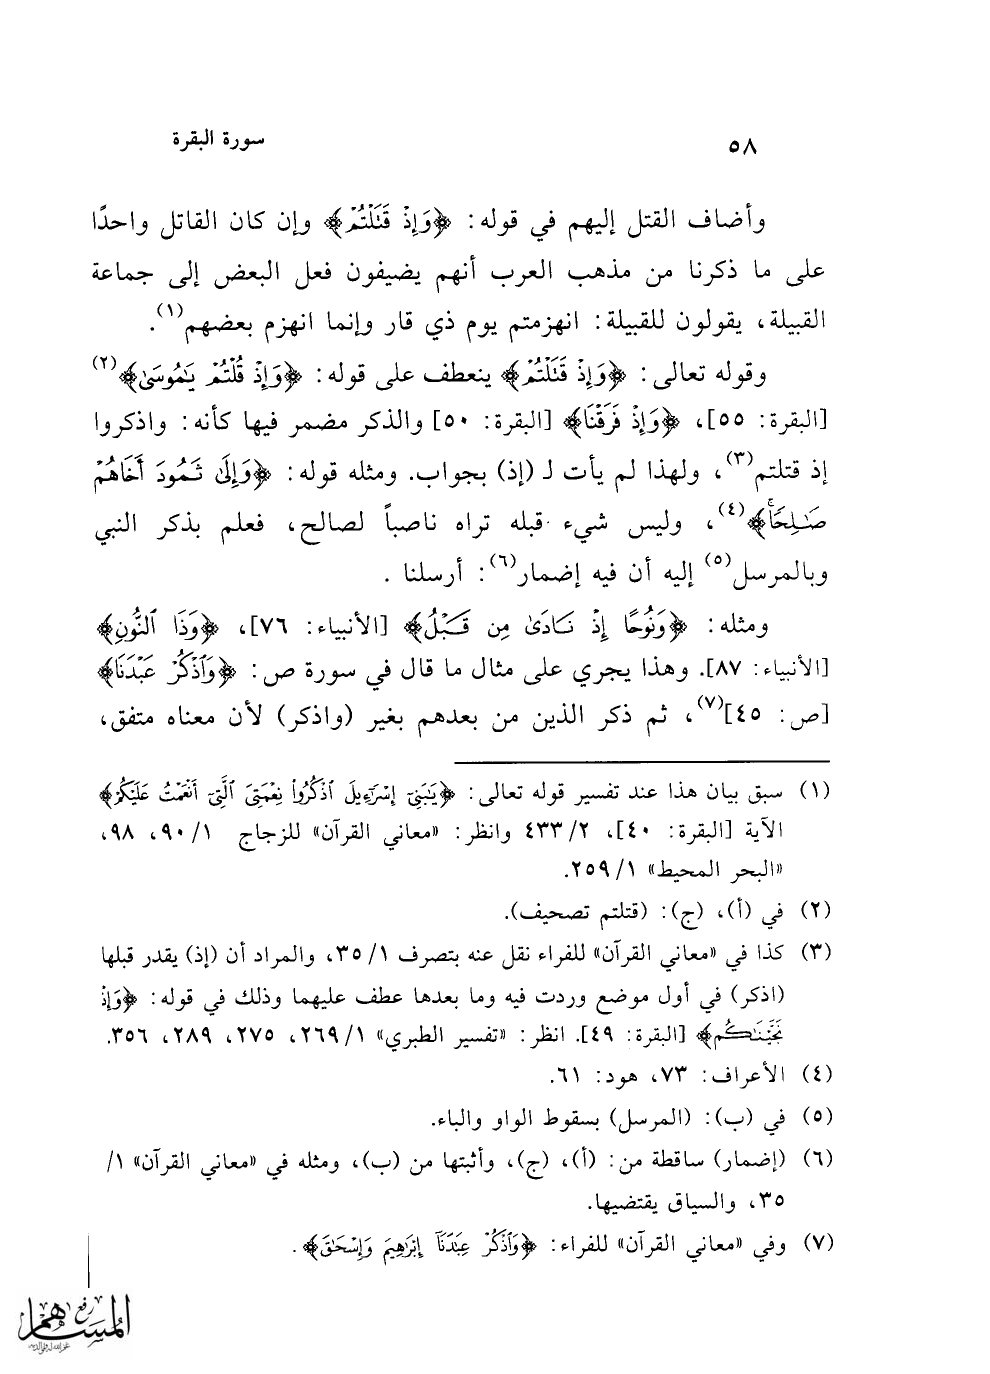 ٥٨ سورة البقرة
وأضاف القتل إليهم في قوله: ﴿وَإِذْ قَتَلْتُمْ﴾ وإن كان القاتل واحدًا
على ما ذكرنا من مذهب العرب أنهم يضيفون فعل البعض إلى جماعة
القبيلة، يقولون للقبيلة: انهزمتم يوم ذي قار وإنما انهزم بعضهم(١).
وقوله تعالى: ﴿وَإِذْ قَتَلْتُمْ﴾ ينعطف على قوله: ﴿وَإِذْ قُلْتُمْ يَٰمُوسَىٰ﴾(٢)
[البقرة: ٥٥]، ﴿وَإِذْ فَرَقْنَا﴾ [البقرة: ٥٠] والذكر مضمر فيها كأنه: واذكروا
إذ قتلتم(٣)، ولهذا لم يأت لـ (إذ) بجواب. ومثله قوله: ﴿وَإِلَىٰ ثَمُودَ أَخَاهُمْ
صَٰلِحًا﴾(٤)، وليس شيء قبله تراه ناصباً لصالح، فعلم بذكر النبي
وبالمرسل(٥) إليه أن فيه إضمار(٦): أرسلنا .
ومثله: ﴿وَنُوحًا إِذْ نَادَىٰ مِن قَبْلُ﴾ [الأنبياء: ٧٦]، ﴿وَذَا ٱلنُّونِ﴾
[الأنبياء: ٨٧]. وهذا يجري على مثال ما قال في سورة ص: ﴿وَٱذْكُرْ عَبْدَنَا﴾
[ص: ٤٥](٧)، ثم ذكر الذين من بعدهم بغير (واذكر) لأن معناه متفق،
(١) سبق بيان هذا عند تفسير قوله تعالى: ﴿يَٰبَنِىٓ إِسْرَٰٓءِيلَ ٱذْكُرُوا۟ نِعْمَتِىَ ٱلَّتِىٓ أَنْعَمْتُ عَلَيْكُمْ﴾
الآية [البقرة: ٤٠]، ٢/ ٤٣٣ وانظر: «معاني القرآن» للزجاج ١/ ٩٠، ٩٨،
«البحر المحيط» ١/ ٢٥٩.
(٢) في (أ)، (ج): (قتلتم تصحيف).
(٣) كذا في «معاني القرآن» للفراء نقل عنه بتصرف ١/ ٣٥، والمراد أن (إذ) يقدر قبلها
(اذكر) في أول موضع وردت فيه وما بعدها عطف عليهما وذلك في قوله: ﴿وَإِذْ
نَجَّيْنَٰكُم﴾ [البقرة: ٤٩]. انظر: «تفسير الطبري» ١/ ٢٦٩، ٢٧٥، ٢٨٩، ٣٥٦.
(٤) الأعراف: ٧٣، هود: ٦١.
(٥) في (ب): (المرسل) بسقوط الواو والباء.
(٦) (إضمار) ساقطة من: (أ)، (ج)، وأثبتها من (ب)، ومثله في «معاني القرآن» ١/
٣٥، والسياق يقتضيها.
(٧) وفي «معاني القرآن» للفراء: ﴿وَٱذْكُرْ عِبَٰدَنَآ إِبْرَٰهِيمَ وَإِسْحَٰقَ﴾ .